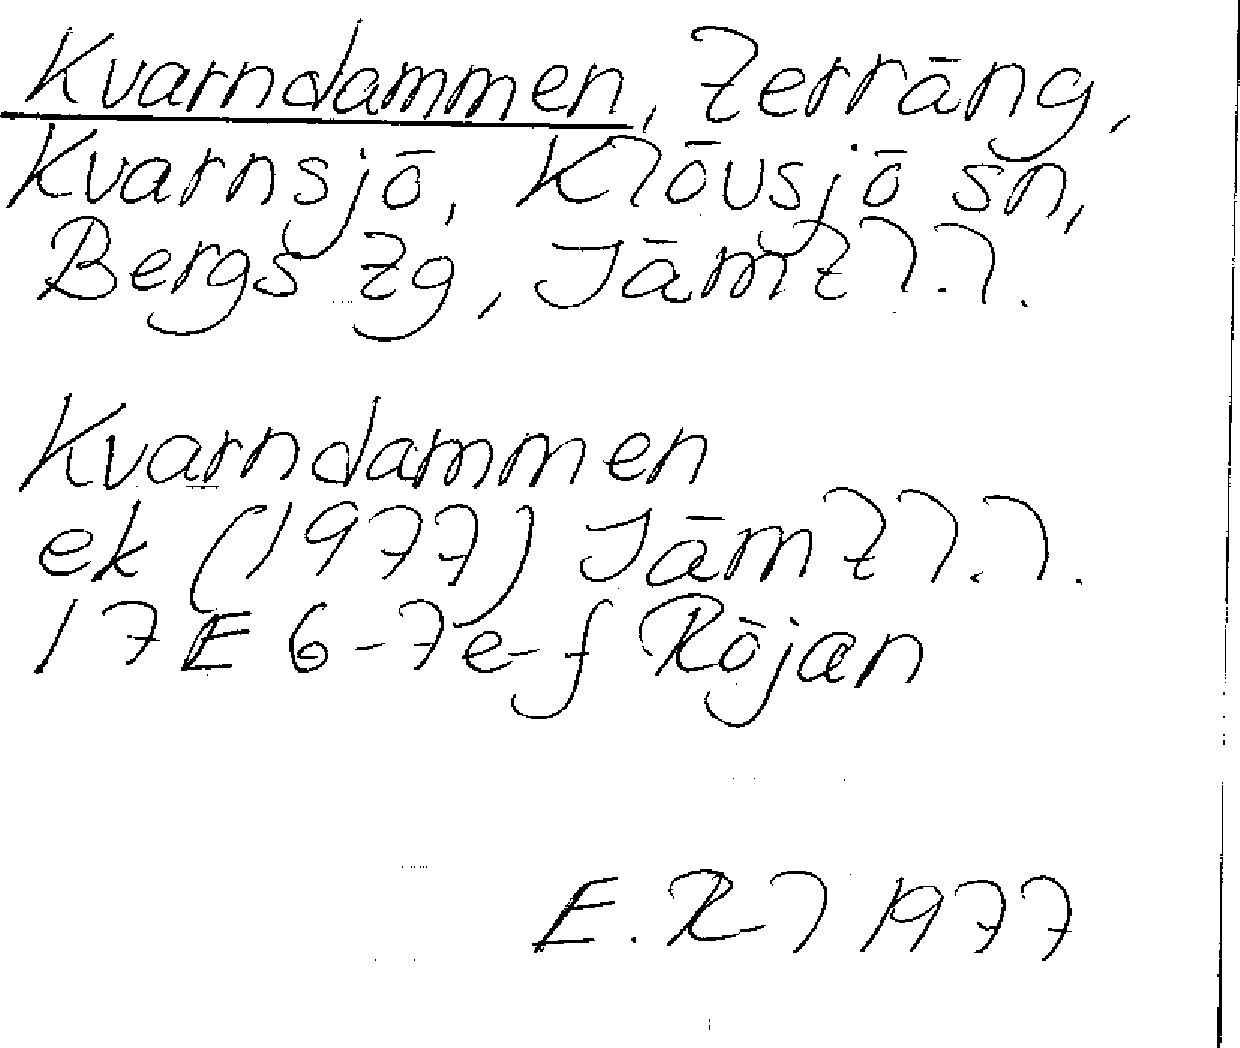 Kvarndammen, terräng,
Kvarnsjö, Klövsjö sn,
Bergs tg, Jämtl.l.
Kvarndammen
ek (1977) Jämtl.l.
17E 6-7e-f Röjan
E. Rl 1977